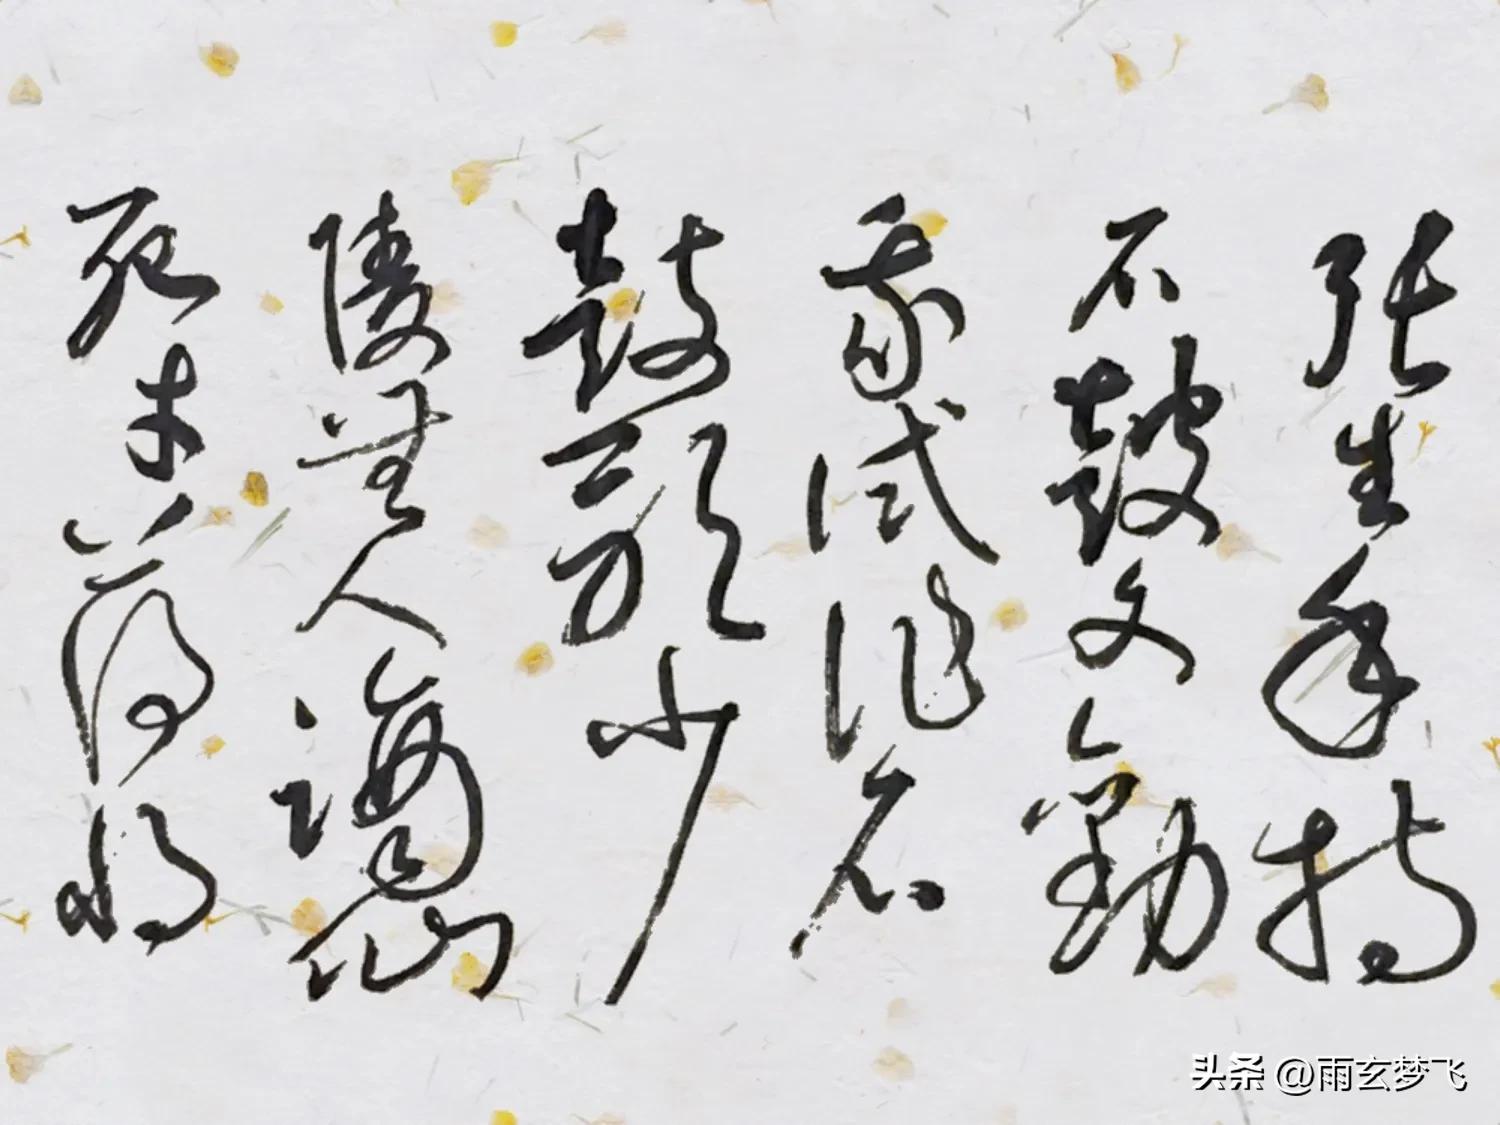 张生手持
石鼓文劝
我试作石
鼓歌少
陵无人谪仙
死才薄将
头条 @雨玄梦飞